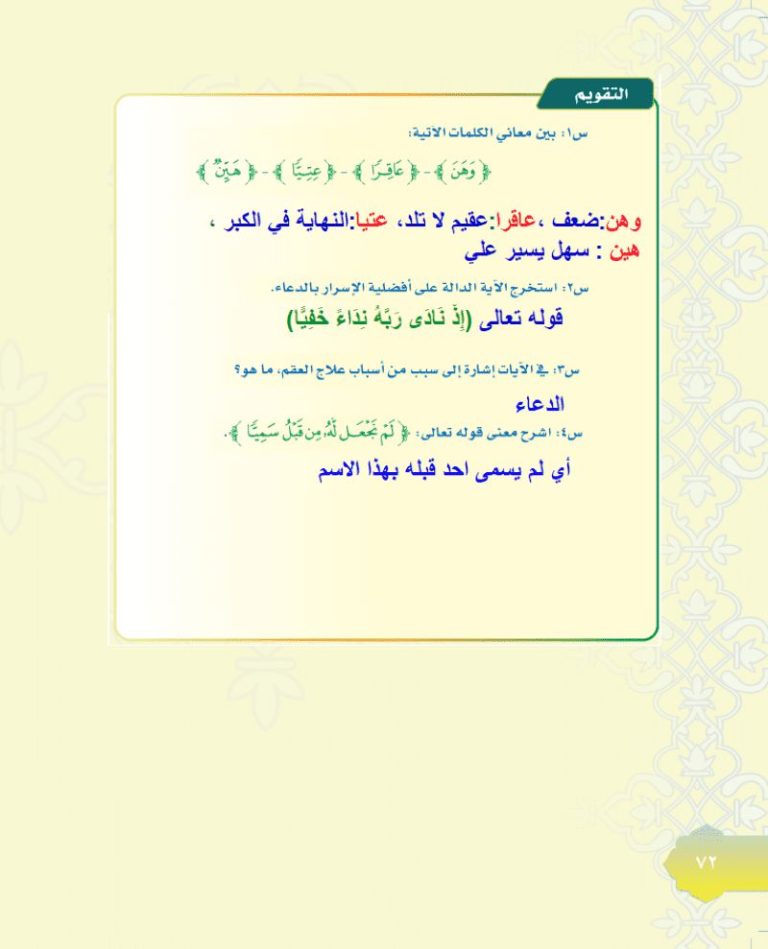 التقويم
س١: بين معاني الكلمات الآتية:
﴿وَهَنَ﴾ - ﴿عَاقِرًا﴾ - ﴿عِتِيًّا﴾ - ﴿هَيِّنٌ﴾
وهن:ضعف ،عاقرا:عقيم لا تلد، عتيا:النهاية في الكبر ،
هين : سهل يسير علي
س٢: استخرج الآية الدالة على أفضلية الإسرار بالدعاء.
قوله تعالى (إِذْ نَادَى رَبَّهُ نِدَاءً خَفِيًّا)
س٣: في الآيات إشارة إلى سبب من أسباب علاج العقم، ما هو؟
الدعاء
س٤: اشرح معنى قوله تعالى: ﴿لَمْ نَجْعَل لَّهُ مِن قَبْلُ سَمِيًّا﴾.
أي لم يسمى احد قبله بهذا الاسم
٧٢